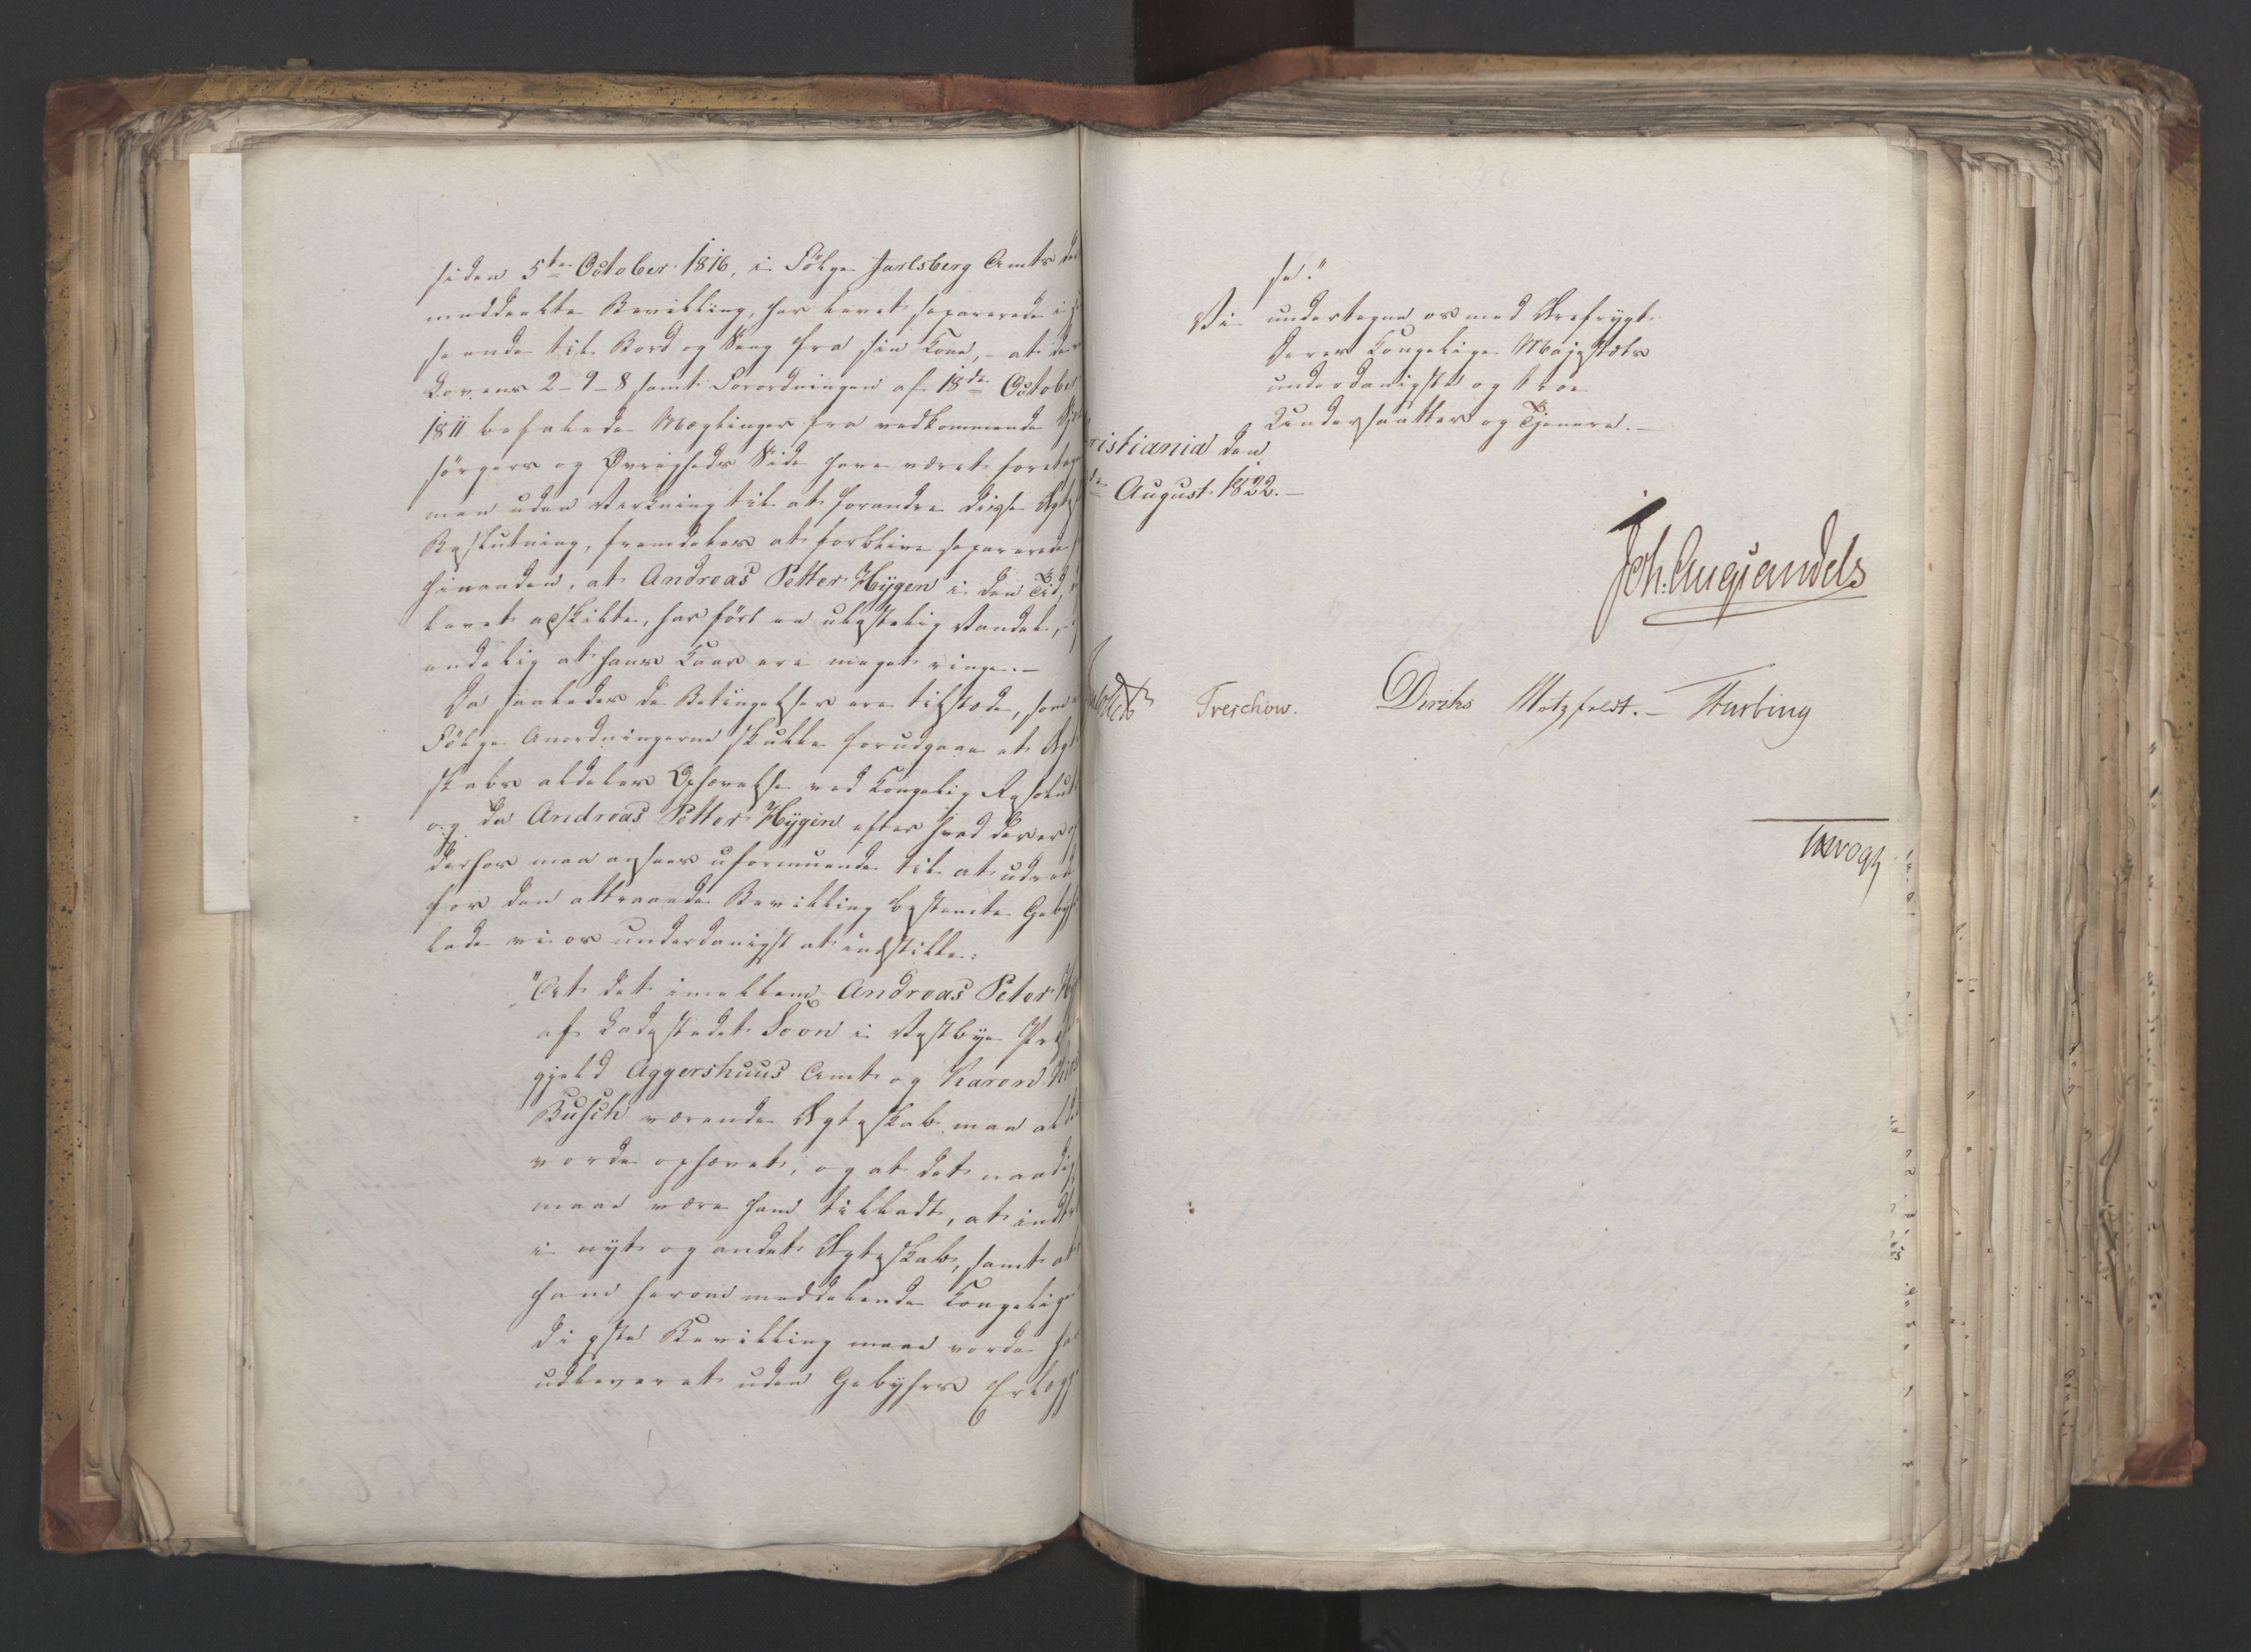 siden 5te October 1816, i Følge Jarlsberg Amts
meddeelte Bevilling, har levet separerede i
seende til Bord og Seng fra sin Kone, - at de
Lovens 2-9-8 samt Forordningen af 18de October
1811 befalede Mæglinger fra vedkommende
sørgers og Øvrigheds Side have været foretag
men uden Virkning til at forandre disse
Beslutning, fremdeles at forblive separerede
hinanden, at Andreas Petter Hÿgen i den Tid,
levet adskilte, har ført en ulastelig Vandel, -
endelig at hans Kaar ere meget ringe. -
Da saaledes de Betingelser ere tilstæde, som
Følge Anordningerne skulle forudgaae et Ægte
skabs aldeles Ophævelse ved Kongelig Resolut
og da Andreas Petter Hÿgen efter hvad der er
derfor maa ansees uformuende til at udrede
for den attraaede Bevilling bestemte Gebyhr
lade vi os underdanigst at indstille:
"At det imellem Andreas Peter Hÿ
af Ladestedet Soon i Vestbye Præ
gjeld Aggershuus Amt og Karen
Busch værende Ægteskab maa alde
vorde ophævet, og at det naadigst
maae være ham tilladt, at indtr
i nyt og andet Ægteskab, samt at
ham herom meddelende Kongelig
digste Bevilling maae vorde ha
udleveret uden Gebyhrs Erlæg
se."
Vi undertegne os med Ærefrygt
Deres Kongelige Majestæts
underdanigste og troe
Undersaatter og Tjenere. -
ristiania den
de August 1822. -
Joh. Aug Sandels
Treschow. Diriks Motzfeldt. - Fasting